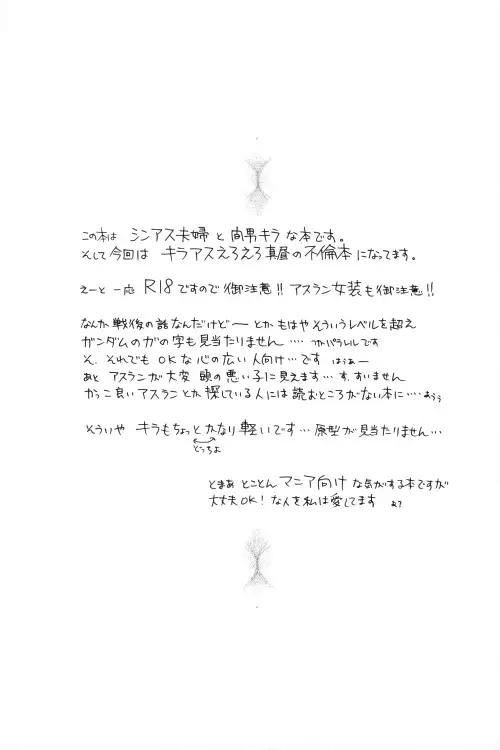 この本は シンアス夫婦 と 間男キラ な本です。
そして今回は キラアスえろえろ真昼の不倫本 になってます。
えーと 一応 R18ですので御注意!! アスラン女装も御注意!!
なんか戦後の話なんだけどー とか もはや そういうレベルを超え
ガンダムのガの字も見当たりません‥‥ つかパラレルです
そ、それでも OKな心の広い人向け…です はうあー
あと アスランが大変 頭の悪い子に見えます… す、すいません
かっこ良いアスランとか探している人には読むところがない本に‥‥ おうぅ
そういや キラもちょっとかなり軽いです… 原型が見当たりません…
どっちよ
とまあ とことん マニア向け な気がする本ですが
大丈夫OK! な人を私は愛してます よ?